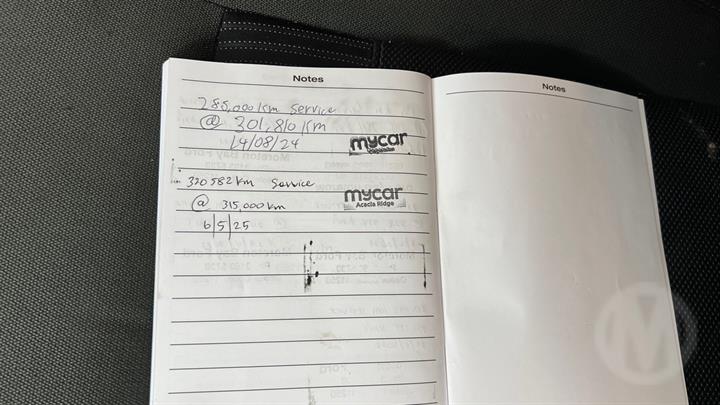 Notes
285,000 Km Service
@ 301,810 Km
14/08/24
mycar
320582 km Service
@ 315,000 km
6/5/25
mycar
Acacia Ridge
Notes
M